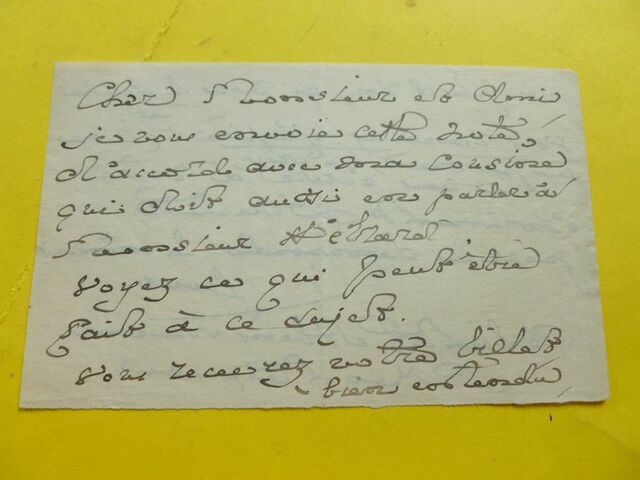 Cher Monsieur et Ami
je vous envoie cette note,
d'accord avec
qui doit aussi en parler à
Monsieur Hébrard
voyez ce qui peut être
fait à ce sujet.
vous recevrez votre billet
bien entendu,